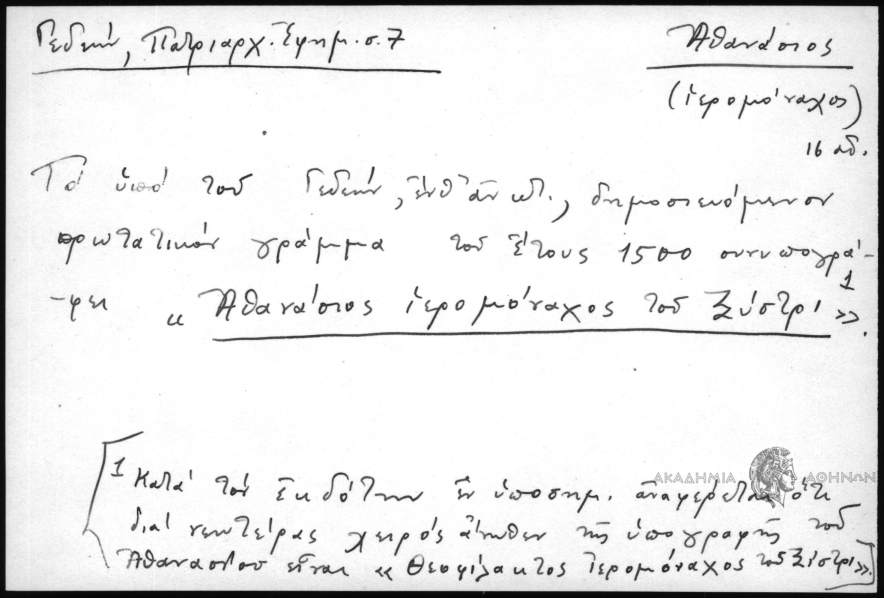 Γεδεών, Πατριαρχ. Ἐφημ. σ. 7
Ἀθανάσιος
(ἱερομόναχος)
16 αἰ.
Τό ὑπό τοῦ Γεδεών, ἔνθ' ἄν ωτ., δημοσιευόμενον
πρωτατικόν γράμμα τοῦ ἔτους 1500 συνυπογρά-
-φει « Ἀθανάσιος ἱερομόναχος τοῦ Ξύστρι »¹.
[¹ Κατά τόν ἐκδότην ἐν ὑποσημ. ἀναφέρεται ὅτι
διά νεωτέρας χειρός ἄνωθεν τῆς ὑπογραφῆς τοῦ
Ἀθανασίου εἶναι « Θεοφύλακτος ἱερομόναχος τοῦ Ξύστρι».]
ΑΚΑΔΗΜΙΑ ΑΘΗΝΩΝ